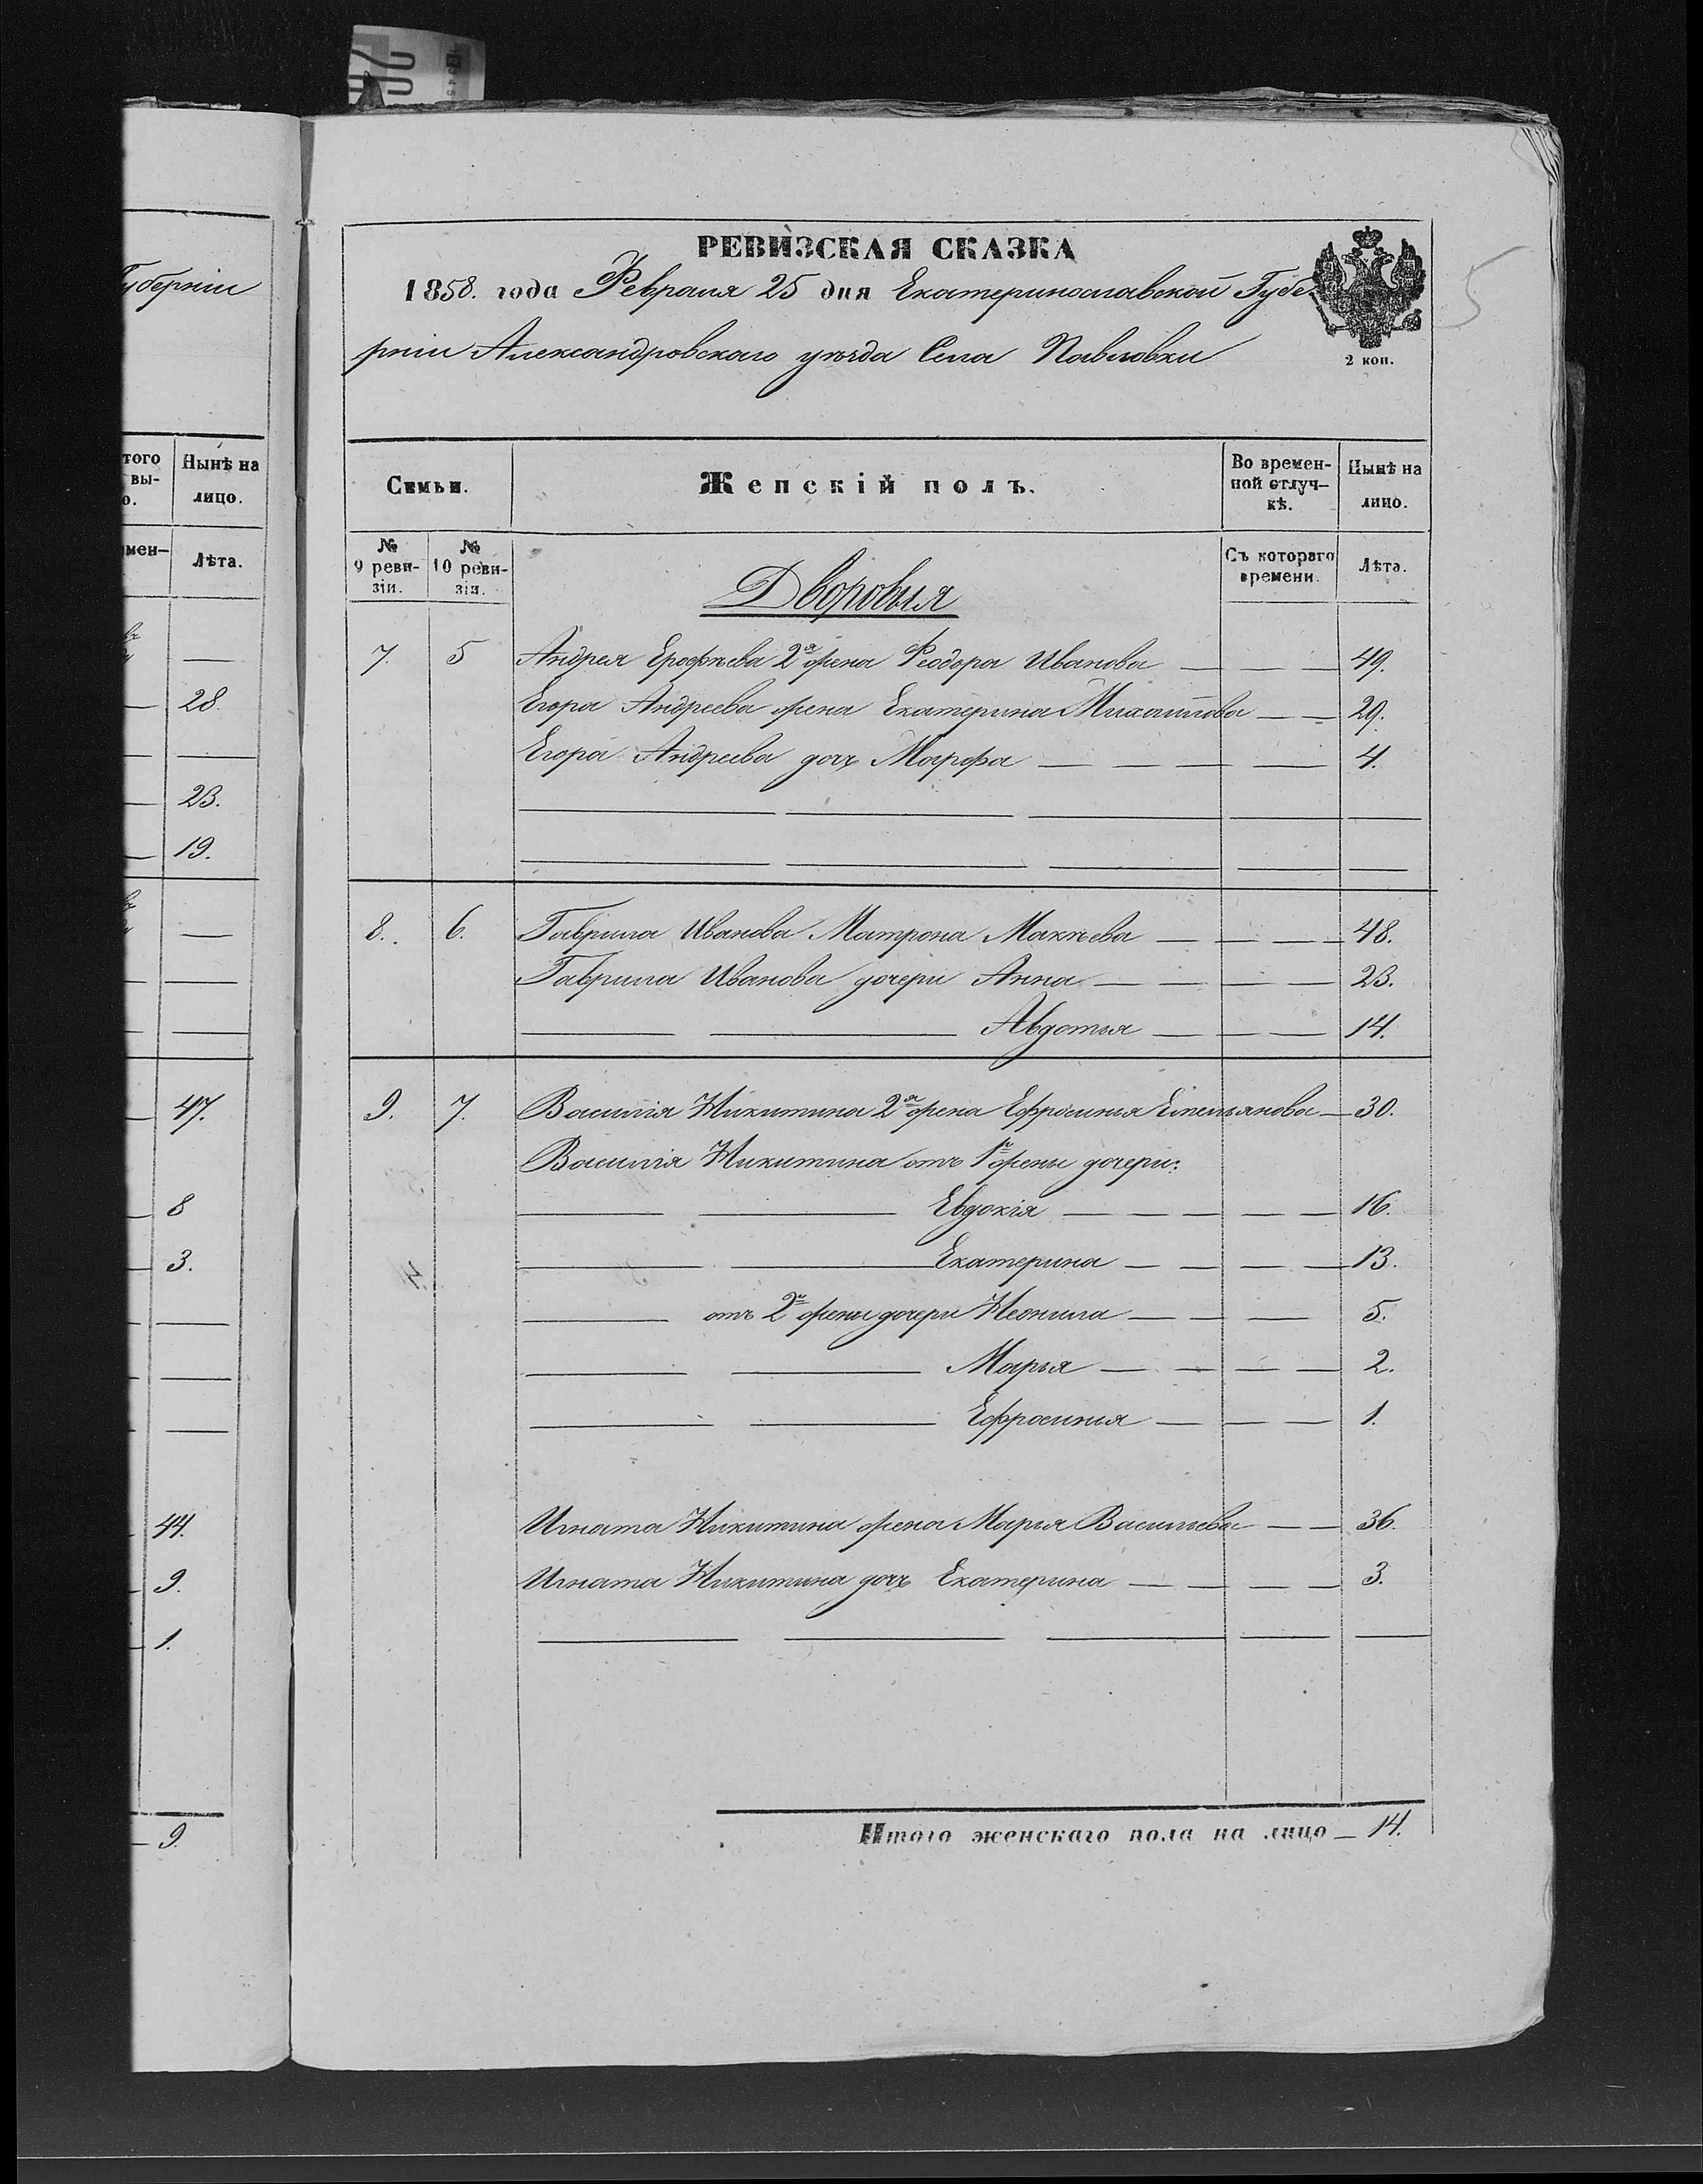 уберніи
того
вы-
о.
Нынѣ на
лицо.
мен-
Лѣта.
28.
23.
19.
47.
8
3.
44.
9.
1.
9.
5
РЕВИЗСКАЯ СКАЗКА
1858. года Февраля 25 дня Екатеринославской Губе-
рніи Александровскаго уѣзда Села Павловки
2 коп.
Семьи. Женскій полъ. Во времен-ной отлуч-кѣ. Нынѣ на лицо.
№ 9 реви-зіи. № 10 реви-зіи. Съ котораго времени. Лѣта.
Дворовыя
7. 5 Андрея Ерофѣева 2я жена Феодора Иванова — — — 49.
Егора Андреева жена Екатерина Михайлова — — 29.
Егора Андреева дочь Марфа — — — — 4.
8. 6. Гаврила Иванова Матрона Макѣева — — — 48.
Гаврила Иванова дочери Анна — — — — 23.
— — Авдотья — — — 14.
9. 7. Василія Никитина 2я жена Ефросинья Емельянова — 30.
Василія Никитина отъ 1й жены дочери:
— — Евдокія — — — — — 16.
— — Екатерина — — — — 13.
— отъ 2й жены дочери Неонила — — — 5.
— — Марья — — — — 2.
— — Ефросинья — — — 1.
Игната Никитина жена Марья Васильева — — 36.
Игната Никитина дочь Екатерина — — — — 3.
Итого женскаго пола на лицо — 14.